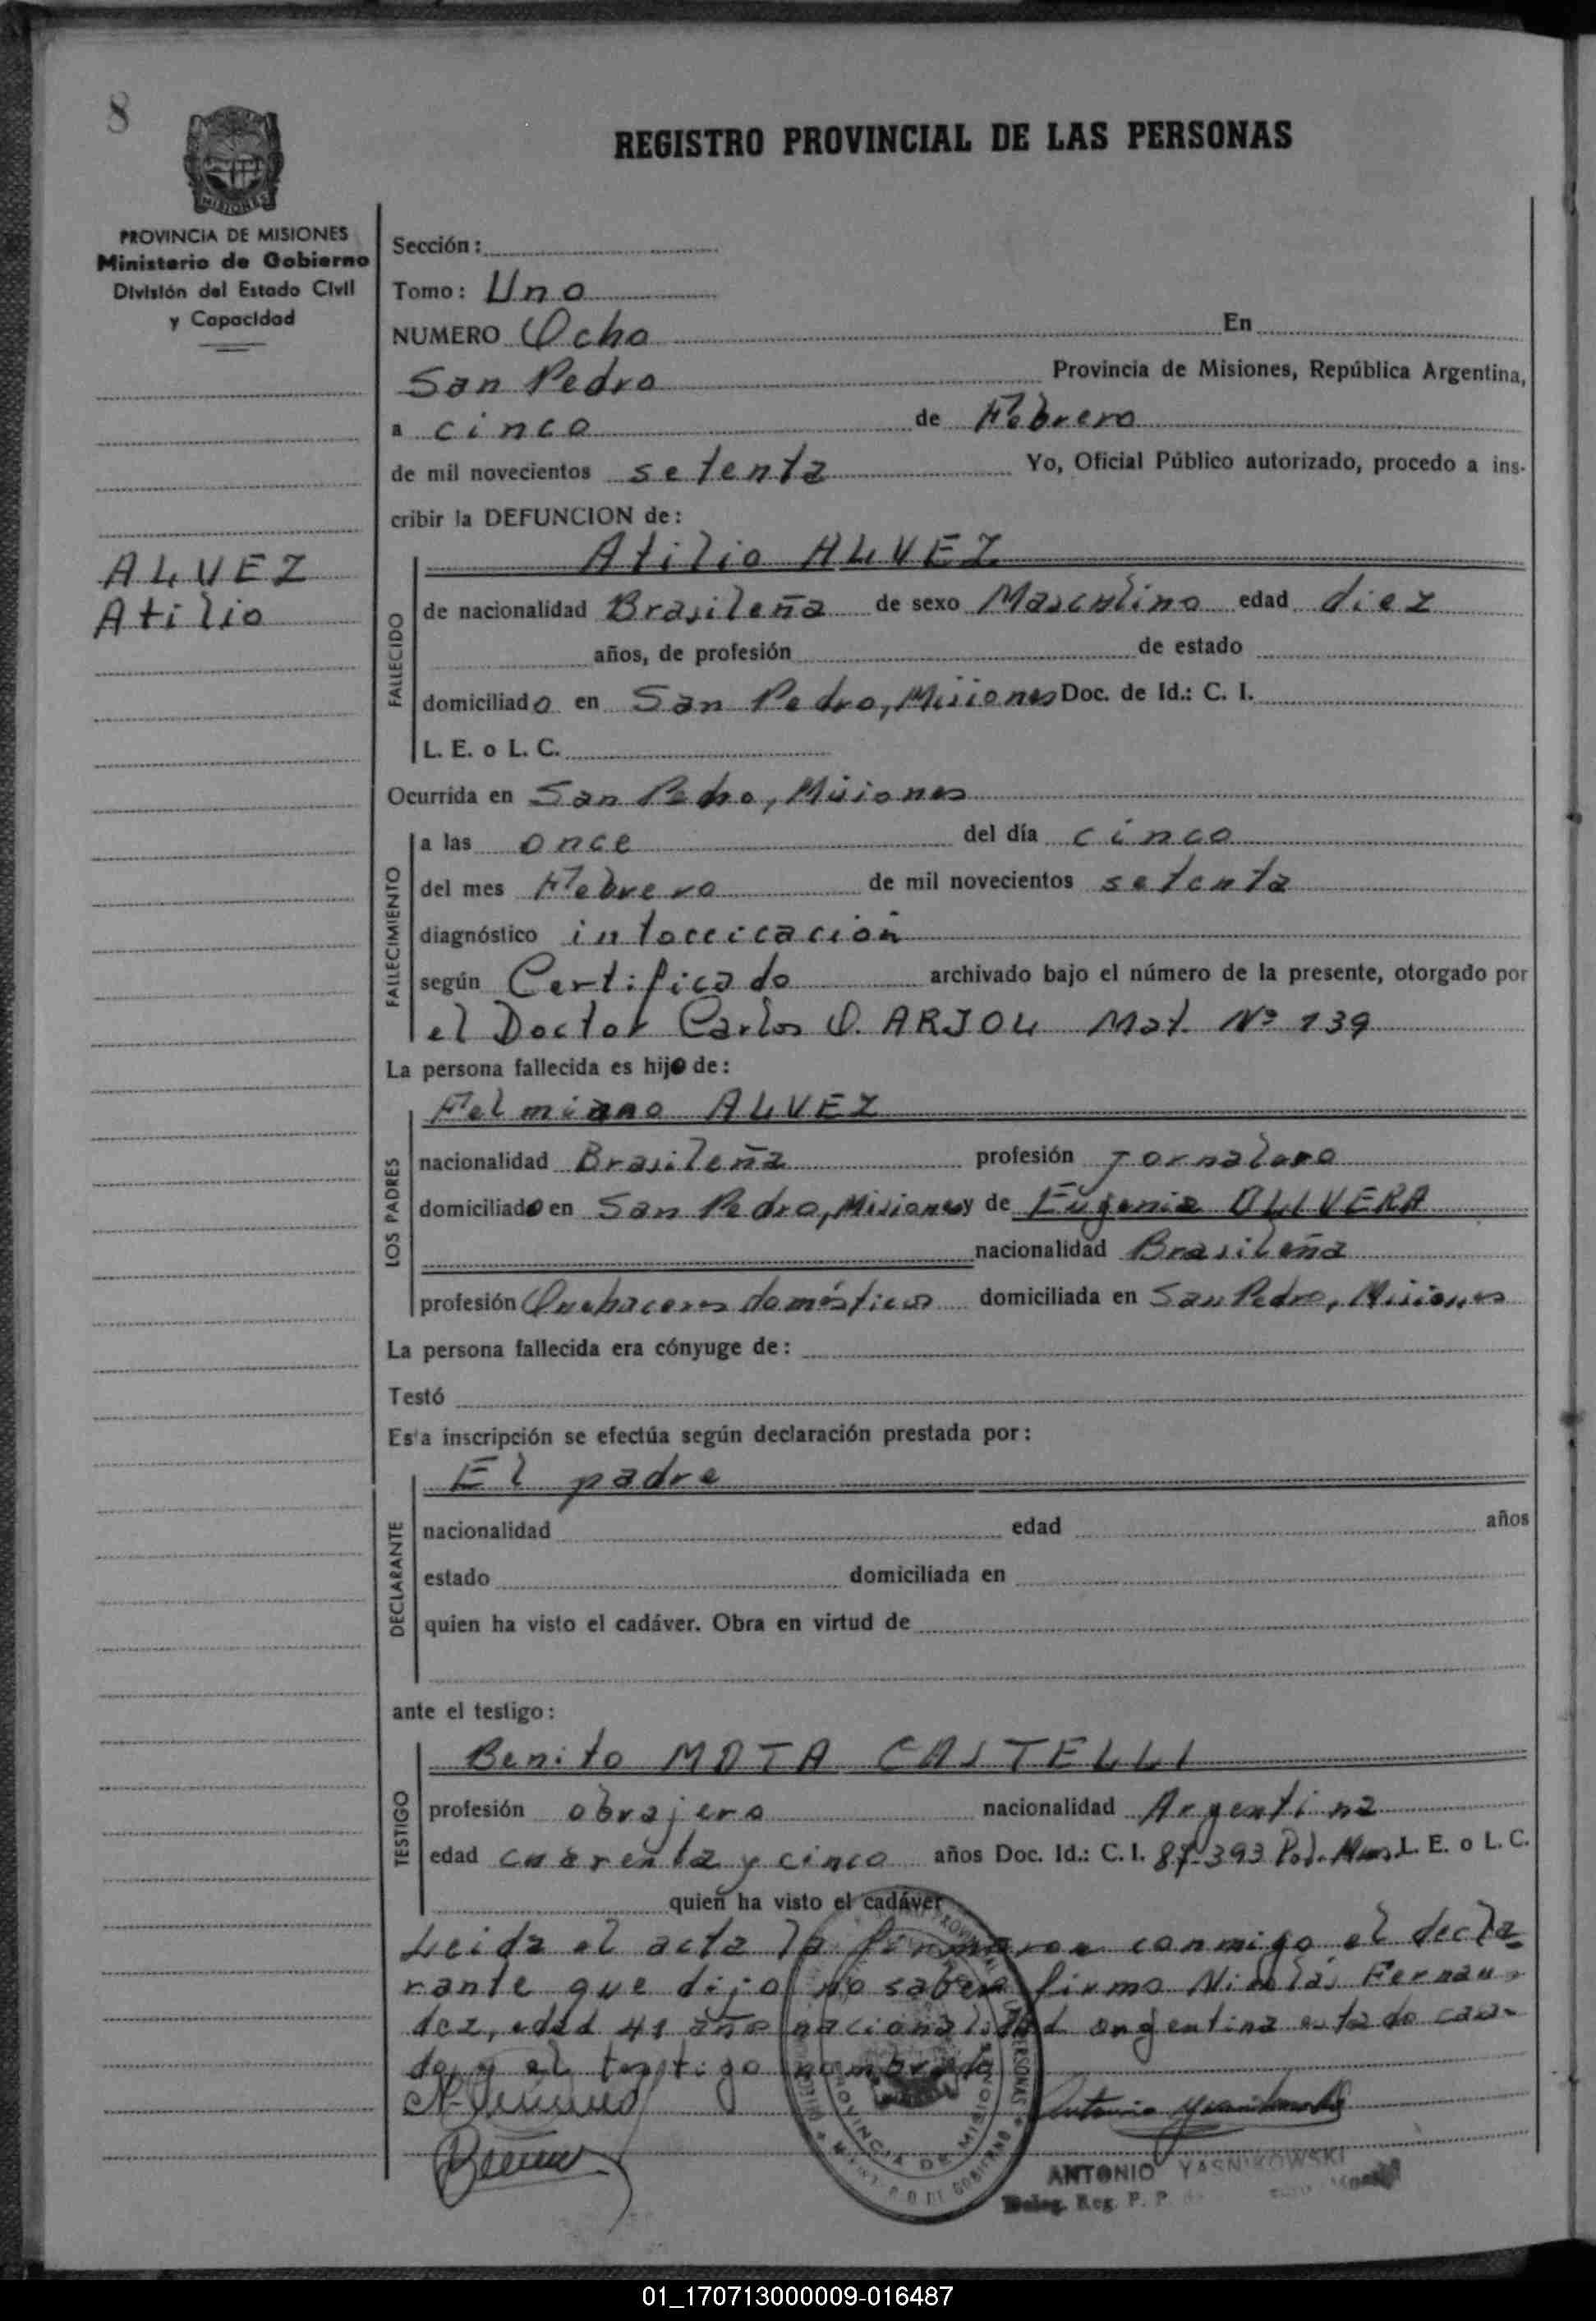 8
REGISTRO PROVINCIAL DE LAS PERSONAS
MISIONES
PROVINCIA DE MISIONES
Ministerio de Gobierno
División del Estado Civil
y Capacidad
ALVEZ
Atilio
Sección:
Tomo: Uno
NUMERO Ocho En
San Pedro Provincia de Misiones, República Argentina,
a cinco de Febrero
de mil novecientos setenta Yo, Oficial Público autorizado, procedo a ins-
cribir la DEFUNCION de:
Atilio ALVEZ
FALLECIDO
de nacionalidad Brasileña de sexo Masculino edad diez
años, de profesión de estado
domiciliado en San Pedro, Misiones Doc. de Id.: C. I.
L. E. o L. C.
Ocurrida en San Pedro, Misiones
FALLECIMIENTO
a las once del día cinco
del mes Febrero de mil novecientos setenta
diagnóstico intoccicación
según Certificado archivado bajo el número de la presente, otorgado por
el Doctor Carlos O. ARJOL Mat. Nº 139
La persona fallecida es hijo de:
LOS PADRES
Felmiano ALVEZ
nacionalidad Brasileña profesión Jornalero
domiciliado en San Pedro, Misiones y de Eugenia OLIVERA
nacionalidad Brasileña
profesión Quehaceres domésticos domiciliada en San Pedro, Misiones
La persona fallecida era cónyuge de:
Testó
Esta inscripción se efectúa según declaración prestada por:
DECLARANTE
El padre
nacionalidad edad años
estado domiciliada en
quien ha visto el cadáver. Obra en virtud de
ante el testigo:
TESTIGO
Benito MOTA CASTELLI
profesión obrajero nacionalidad Argentina
edad cuarenta y cinco años Doc. Id.: C. I. 87-393 Pol. Mnes. L. E. o L. C.
quien ha visto el cadáver
Leida el acta la firmaron conmigo el decla-
rante que dijo no saber firmo Nicolás Fernan-
dez, edad 41 año nacionalidad argentina estado casa-
do, y el testigo nombrado
PROVINCIA DE MISIONES
ANTONIO YASNIKOWSKI
Deleg. Reg. P. P.
01_170713000009-016487